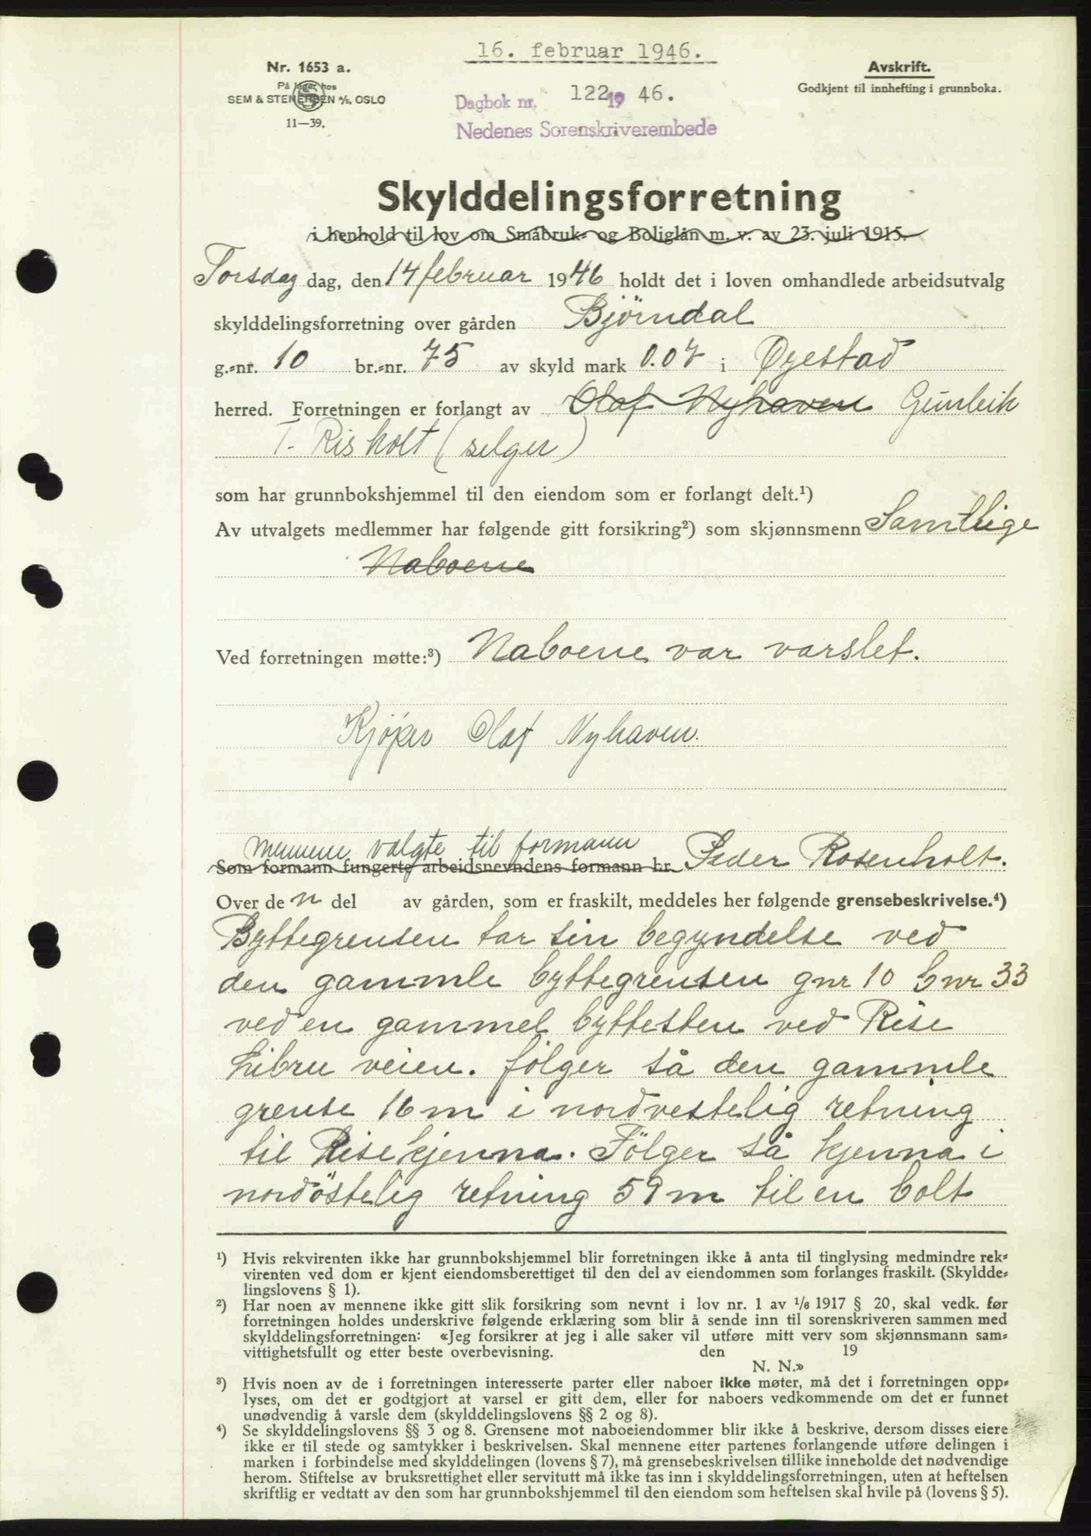 16. februar 1946.
Nr. 1653 a.
På lager hos
SEM & STENERSEN A/S, OSLO
11—39.
Dagbok nr. 122 19 46.
Nedenes Sorenskriverembede
Avskrift.
Godkjent til innhefting i grunnboka.
Skylddelingsforretning
i henhold til lov om Småbruk- og Boliglån m. v. av 23. juli 1915.
Torsdag dag, den 14 februar 1946 holdt det i loven omhandlede arbeidsutvalg
skylddelingsforretning over gården Bjørndal
g.-nr. 10 br.-nr. 75 av skyld mark 0.07 i Øyestad
herred. Forretningen er forlangt av Olaf Nyhaven Gunleik
T. Risholt (selger)
som har grunnbokshjemmel til den eiendom som er forlangt delt.¹)
Av utvalgets medlemmer har følgende gitt forsikring²) som skjønnsmenn Samtlige
Naboene
Ved forretningen møtte:³) Naboene var varslet.
Kjøper Olaf Nyhaven.
mennene valgte til formann
Som formann fungerte arbeidsnevndens formann hr. Peder Rosenholt.
Over de n del av gården, som er fraskilt, meddeles her følgende grensebeskrivelse.⁴)
Byttegrensen tar sin begyndelse ved
den gammle byttegrensen gnr 10 bnr 33
ved en gammel byttesten ved Rise
Libru veien. følger så den gammle
grense 16 m i nordvestelig retning
til Risekjenna. Følger så kjenna i
nordöstelig retning 59 m til en bolt
¹) Hvis rekvirenten ikke har grunnbokshjemmel blir forretningen ikke å anta til tinglysing medmindre rek-
virenten ved dom er kjent eiendomsberettiget til den del av eiendommen som forlanges fraskilt. (Skyldde-
lingslovens § 1).
²) Har noen av mennene ikke gitt slik forsikring som nevnt i lov nr. 1 av 1/6 1917 § 20, skal vedk. før
forretningen holdes underskrive følgende erklæring som blir å sende inn til sorenskriveren sammen med
skylddelingsforretningen: «Jeg forsikrer at jeg i alle saker vil utføre mitt verv som skjønnsmann sam-
vittighetsfullt og etter beste overbevisning. den 19
N. N.»
³) Hvis noen av de i forretningen interesserte parter eller naboer ikke møter, må det i forretningen opp-
lyses, om det er godtgjort at varsel er gitt dem, eller for naboers vedkommende om det er funnet
unødvendig å varsle dem (skylddelingslovens §§ 2 og 8).
⁴) Se skylddelingslovens §§ 3 og 8. Grensene mot naboeiendommer blir ikke å beskrive, dersom disses eiere
ikke er til stede og samtykker i beskrivelsen. Skal mennene etter partenes forlangende utføre delingen i
marken i forbindelse med skylddelingen (lovens § 7), må grensebeskrivelsen tillike inneholde det nødvendige
herom. Stiftelse av bruksrettighet eller servitutt må ikke tas inn i skylddelingsforretningen, uten at heftelsen
skriftlig er vedtatt av den som har grunnbokshjemmel til den eiendom som heftelsen skal hvile på (lovens § 5).